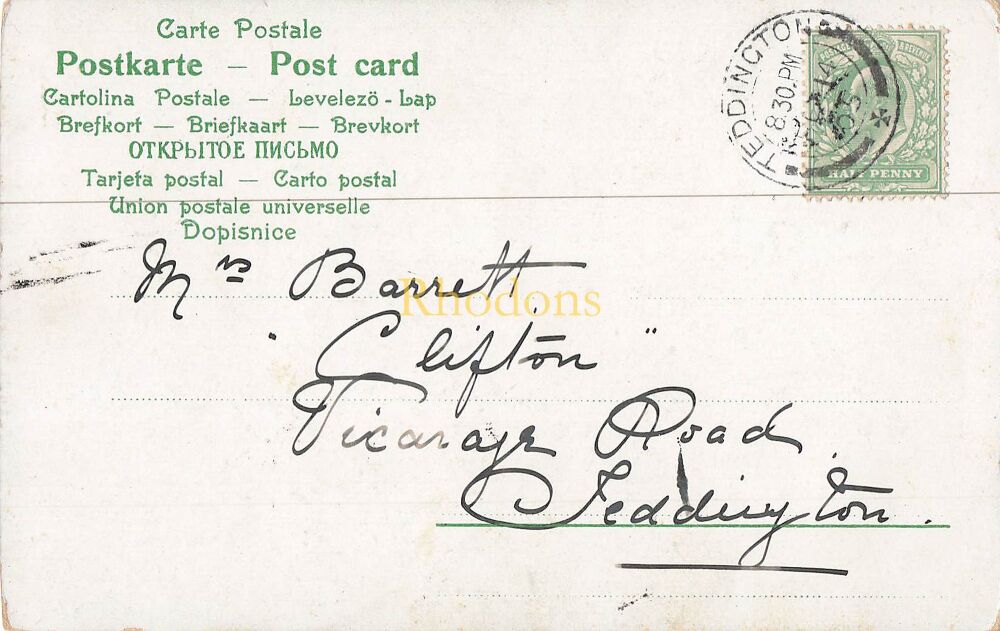 Carte Postale
Postkarte — Post card
Cartolina Postale — Levelező - Lap
Brefkort — Briefkaart — Brevkort
ОТКРЫТОЕ ПИСЬМО
Tarjeta postal — Carto postal
Union postale universelle
Dopisnice
TEDDINGTON
8.30.PM
14
05
HALF PENNY
Mrs Barrett
"Clifton"
Vicarage Road
Teddington.
Rhodons